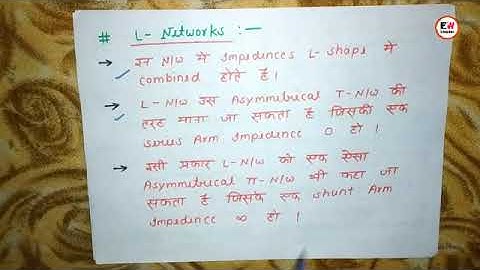 # L- Networks :-
→ इस N/W में Impedences L- Shape में
combined होते है।
→ L- N/W उस Asymmetrical T-N/W की
तरह माना जा सकता है जिसकी एक
series Arm Impedence 0 हो।
→ इसी प्रकार L-N/W को एक ऐसा
Asymmetrical π-N/W भी कहा जा
सकता है जिसके एक shunt Arm
Impedence ∞ हो।
EW